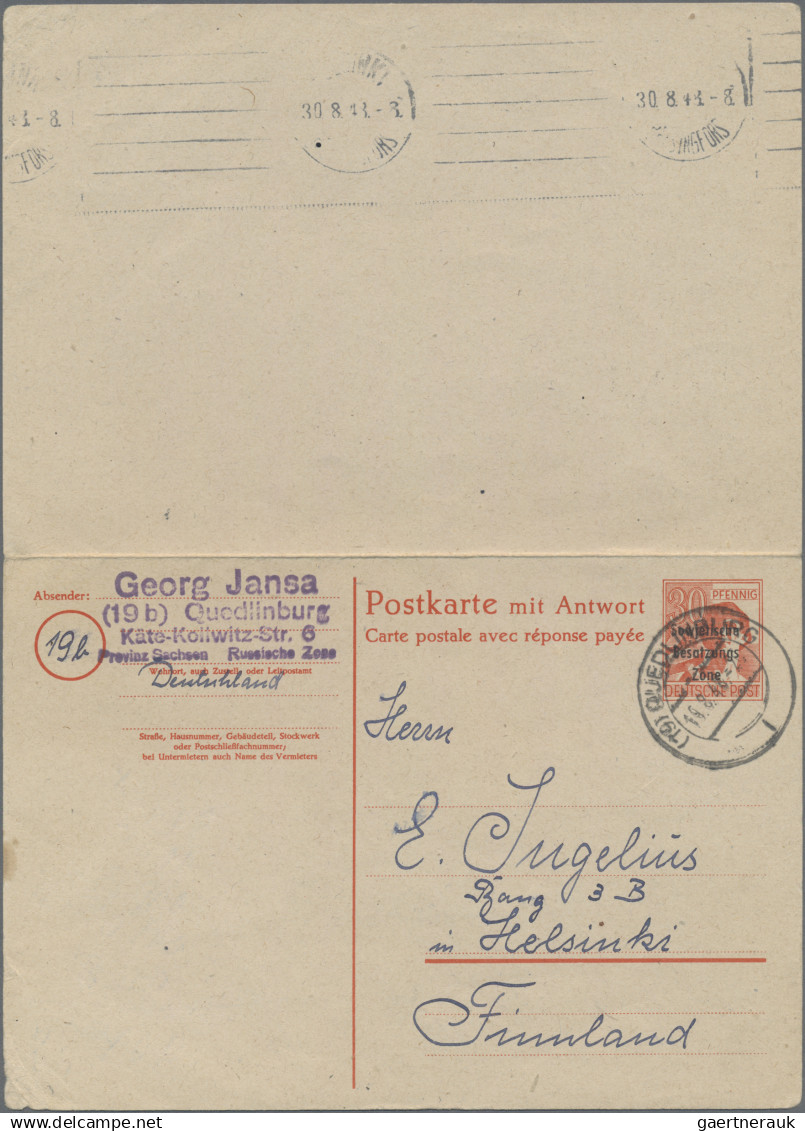 30. 8. 48. - 8.
30. 8. 48. - 8.
Georg Jansa
Absender:
(19 b) Quedlinburg
Käte-Kollwitz-Str. 6
Provinz Sachsen Russische Zone
19b
Wohnort, auch Zustell- oder Leitpostamt
Deutschland
Straße, Hausnummer, Gebäudeteil, Stockwerk
oder Postschließfachnummer;
bei Untermietern auch Name des Vermieters
Postkarte mit Antwort
Carte postale avec réponse payée
30 PFENNIG
Sowjetische
Besatzungs
Zone
DEUTSCHE POST
(19) QUEDLINBURG
Herrn
E. Ingelius
3 B
in Helsinki
Finnland
gaertnerauk